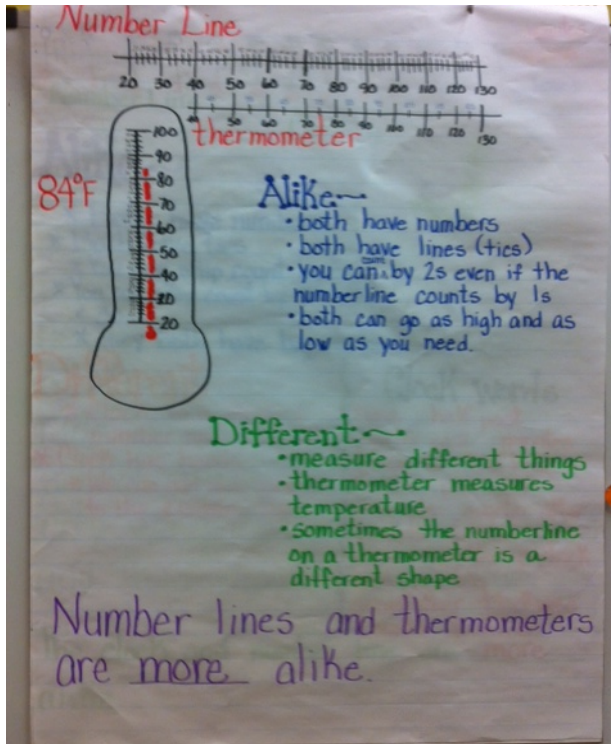 Number Line
20 30 40 50 60 70 80 90 100 110 120 130
40 50 60 70 80 90 100 110 120 130
thermometer
100
90
84°F
80
70
60
50
40
30
20
Alike~
• both have numbers
• both have lines (tics)
• you can count by 2s even if the
numberline counts by 1s
• both can go as high and as
low as you need.
Different~
• measure different things
• thermometer measures
temperature
• sometimes the numberline
on a thermometer is a
different shape
Number lines and thermometers
are more alike.